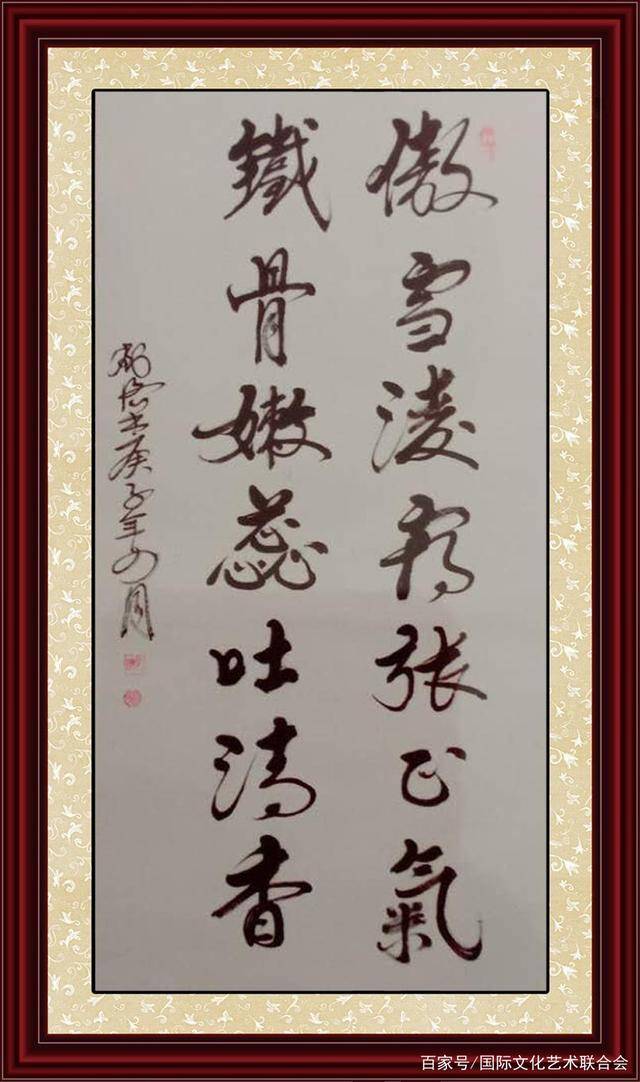 傲雪淩霜張正氣
鐵骨嫩蕊吐清香
書庚子年四月
百家号/国际文化艺术联合会